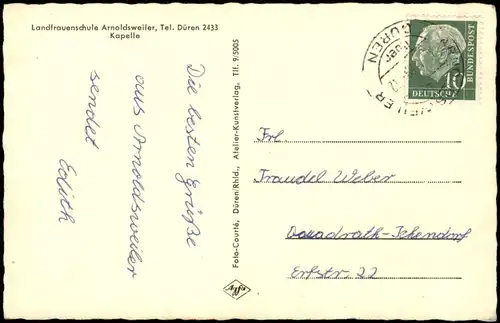 Landfrauenschule Arnoldsweiler, Tel. Düren 2433
Kapelle
Die besten Grüße
aus Arnoldsweiler
sendet
Edith
Foto-Courté, Düren/Rhld., Atelier-Kunstverlag, Tlf. 9/5005
DÜREN
10
DEUTSCHE
BUNDESPOST
Frl.
Traudel Weber
Quadrath-Ichendorf
Erftstr. 22